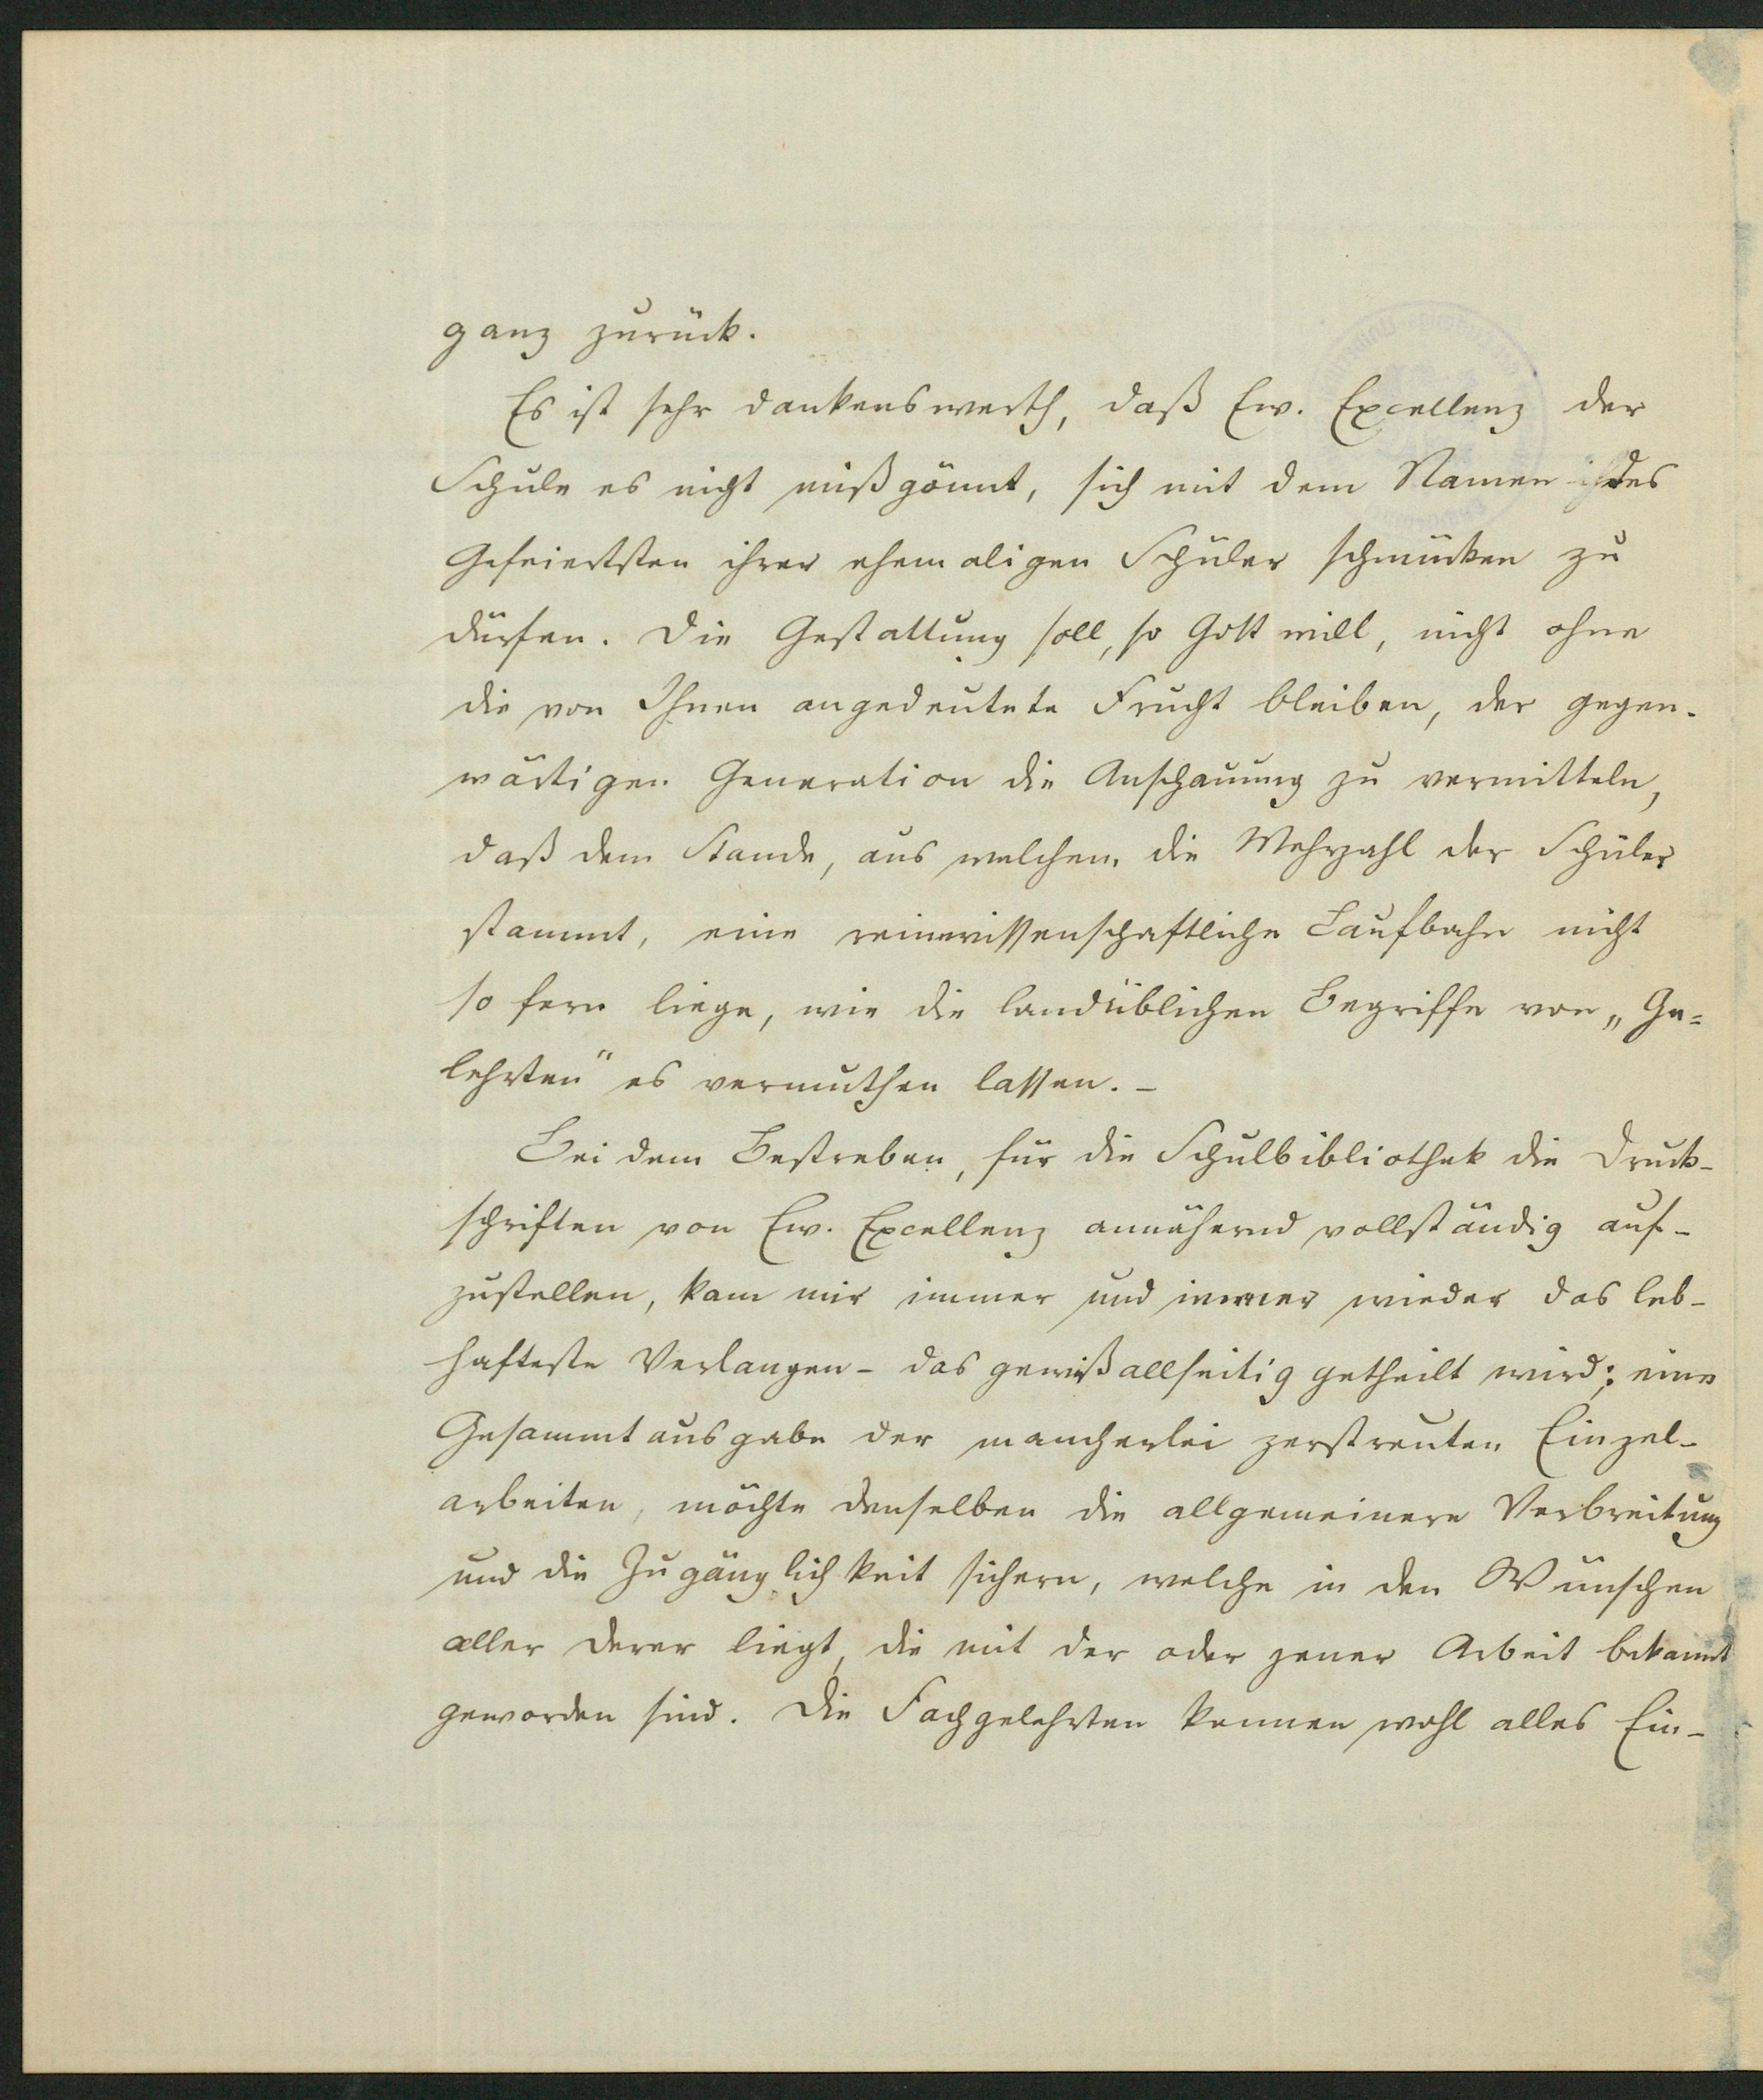 ganz zurück.
Es ist sehr dankenswerth, daß Ew. Excellenz der
Schule es nicht mißgönnt, sich mit dem Namen des
Gefeiertsten ihrer ehemaligen Schüler schmücken zu
dürfen. Die Gestattung soll, so Gott will, nicht ohne
die von Ihnen angedeutete Frucht bleiben, der gegen-
wärtigen Generation die Anschauung zu vermitteln,
daß dem Stande, aus welchem die Mehrzahl der Schüler
stammt, eine reinwissenschaftliche Laufbahn nicht
so fern liege, wie die landüblichen Begriffe von „Ge=
lehrten“ es vermuthen lassen. –
Bei dem Bestreben, für die Schulbibliothek die Druck-
schriften von Ew. Excellenz annähernd vollständig auf-
zustellen, kam mir immer und immer wieder das leb-
hafteste Verlangen – das gewiß allseitig getheilt wird: eine
Gesammtausgabe der mancherlei zerstreuten Einzel-
arbeiten, möchte denselben die allgemeinere Verbreitung
und die Zugänglichkeit sichern, welche in den Wünschen
aller derer liegt, die mit der oder jener Arbeit bekannt
geworden sind. Die Fachgelehrten kennen wohl alles Ein-